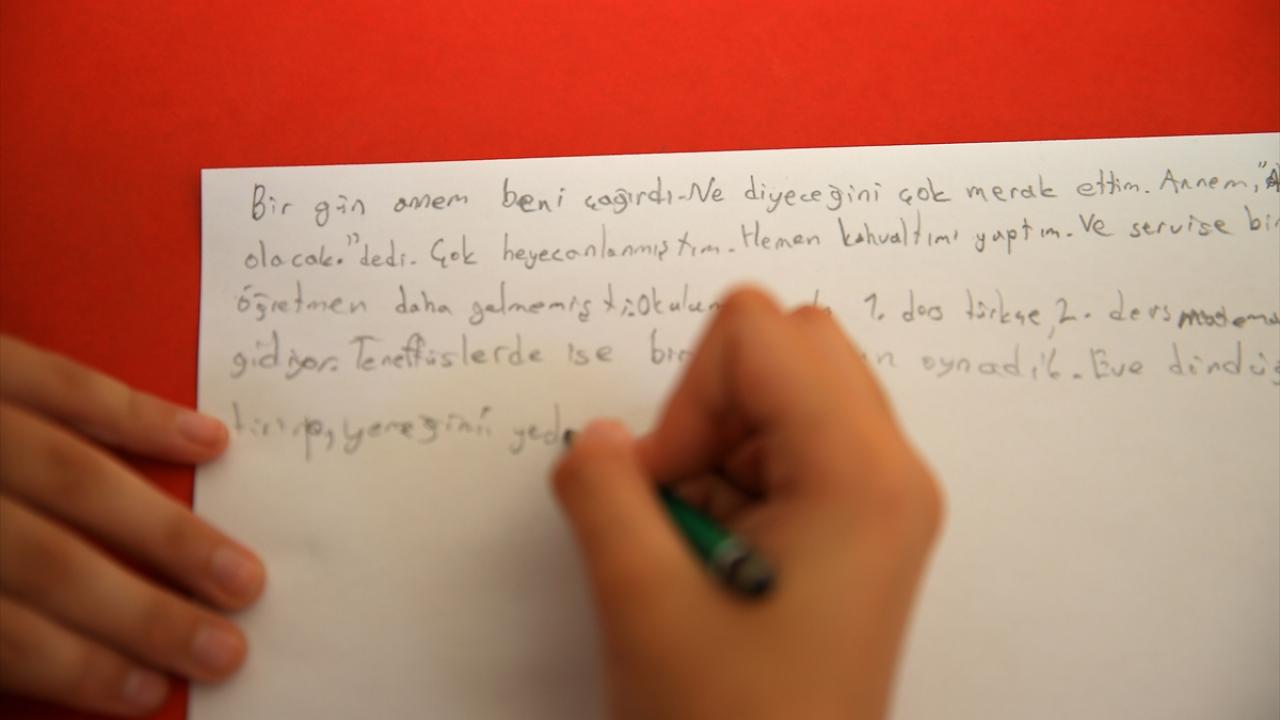 Bir gün annem beni çağırdı. Ne diyeceğini çok merak ettim. Annem, "
olacak." dedi. Çok heyecanlanmıştım. Hemen kahvaltımı yaptım. Ve servise
öğretmen daha gelmemişti. 1. ders türkçe, 2. ders
gidiyor. Teneffüslerde ise oynadık. Eve
yemeğini